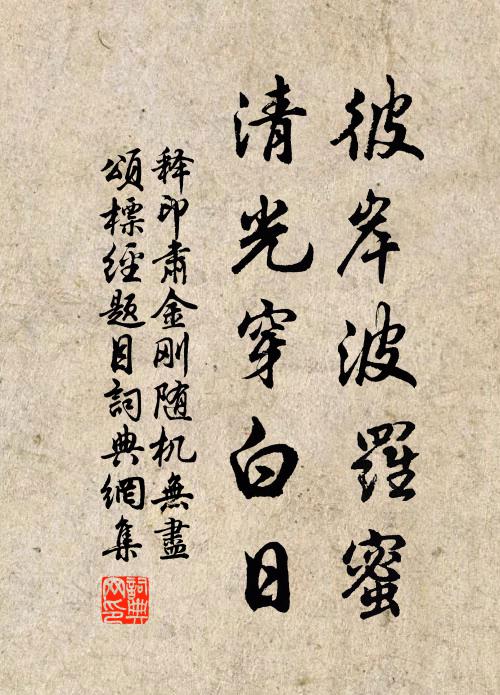 彼岸波羅蜜
清光穿白日
释印肃金刚随机無盡
頌標經題目詞典網集
詞典